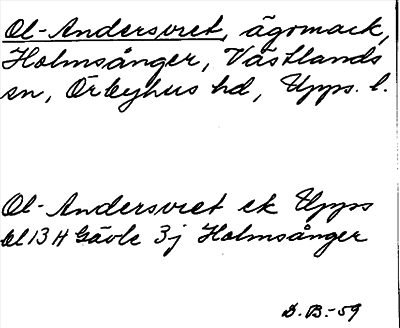 Ol-Andersvret, ägomark,
Holmsånger, Västlands
sn, Örbyhus hd, Upps. l.
Ol-Andersvret ek Upps
bl 13 H Gävle 3j Holmsånger
D.B.-59